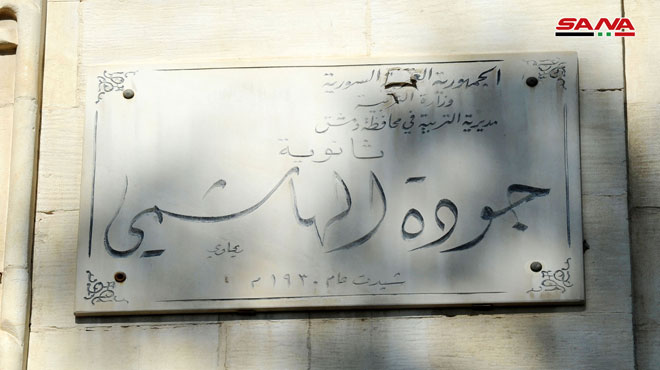 SANA
الجمهورية العربية السورية
وزارة التربية
مديرية التربية في محافظة دمشق
ثانوية
جودة الهاشمي
شيدت عام ١٩٣٠ م